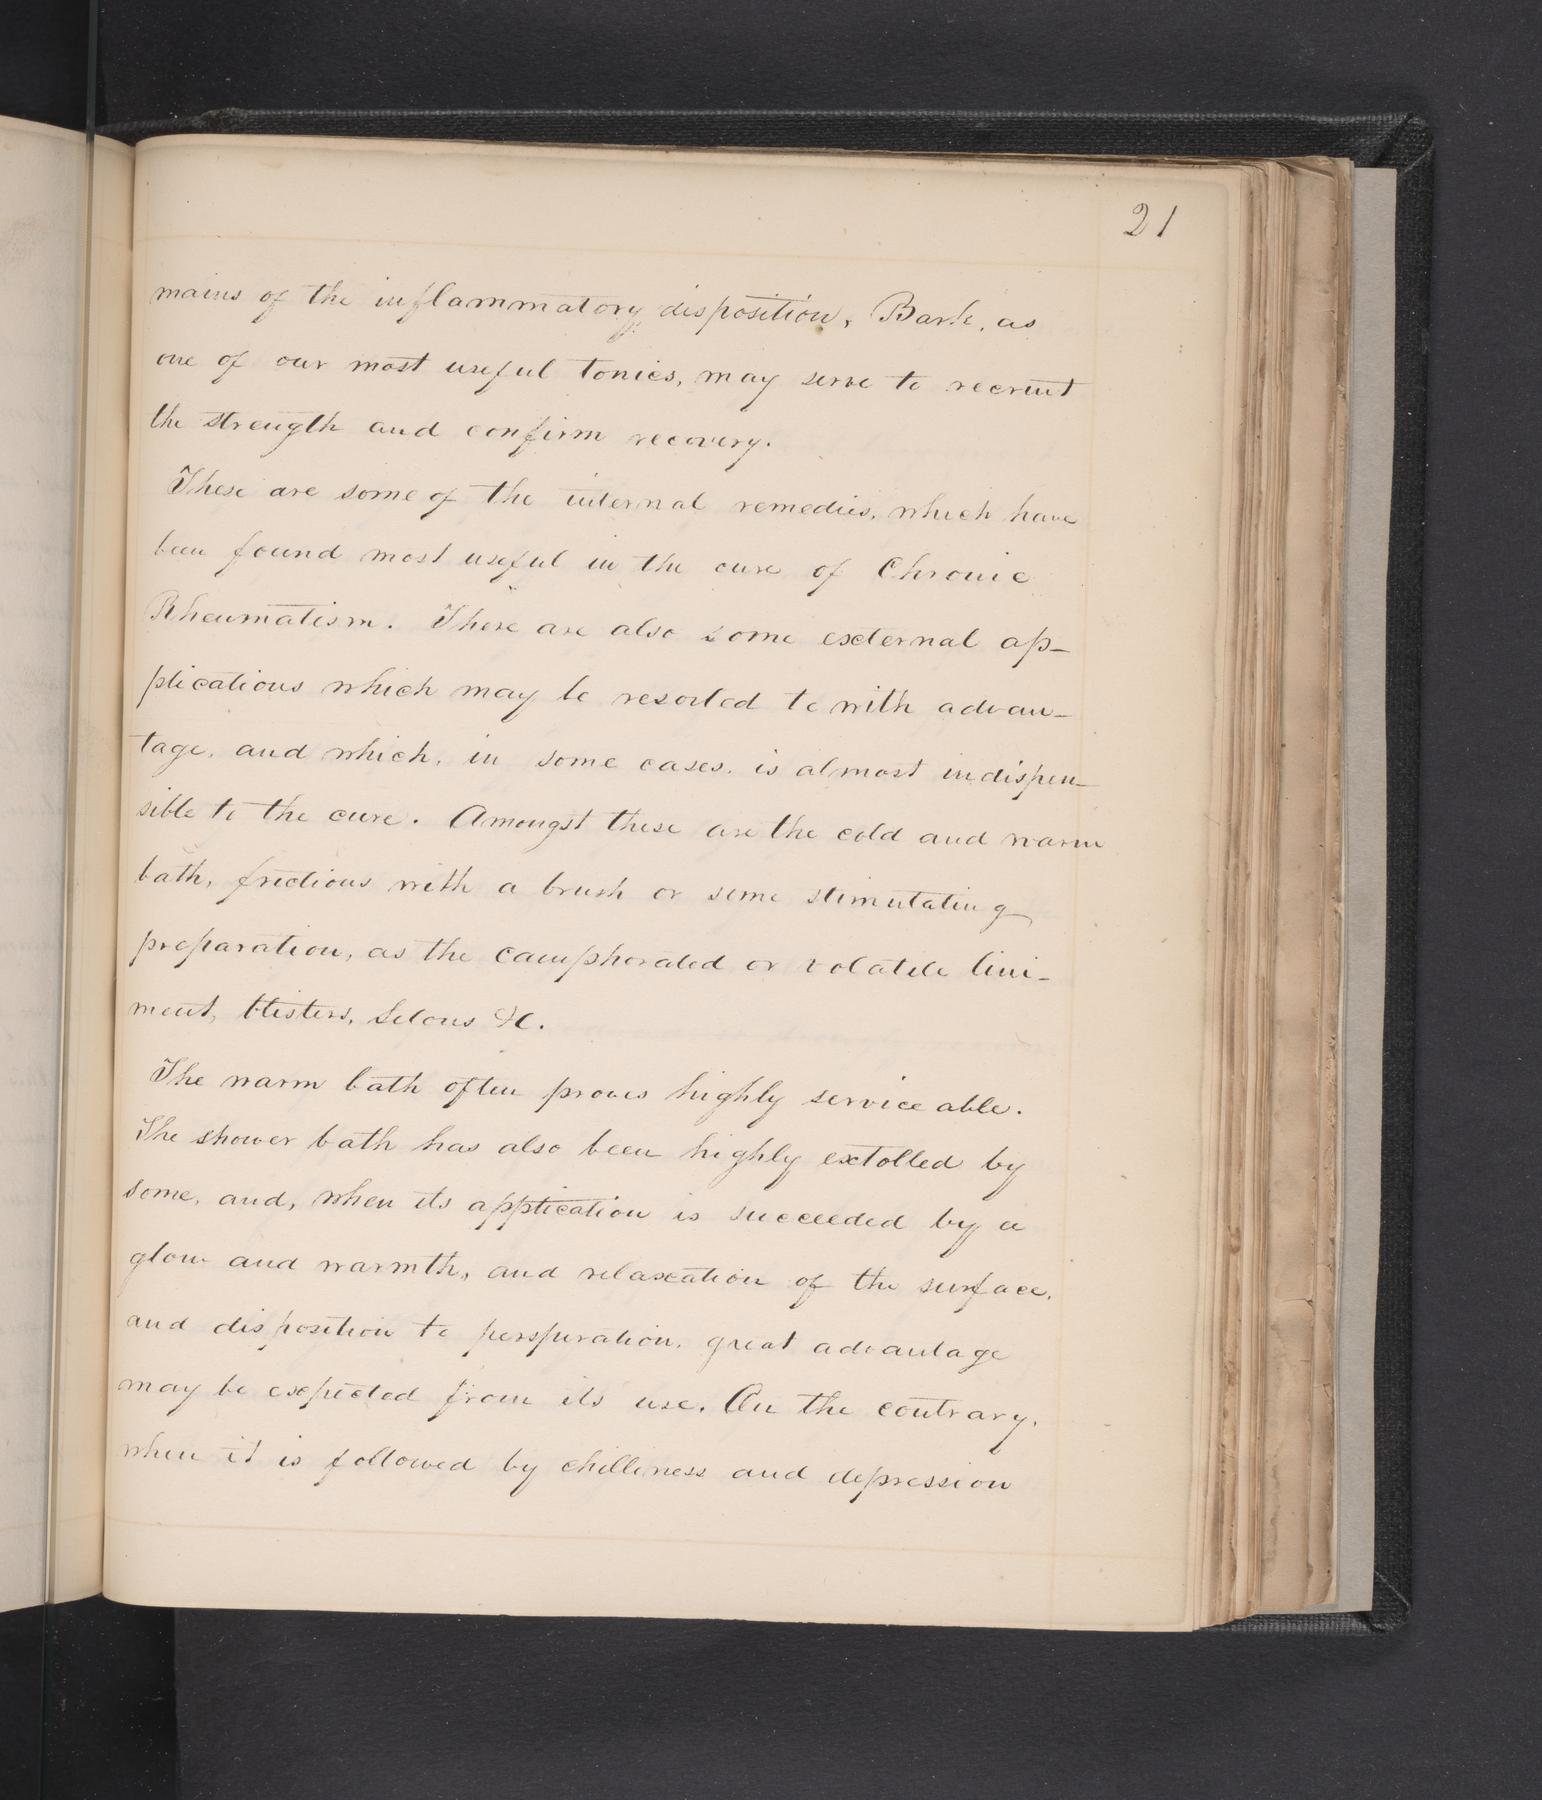 21
mains of the inflammatory disposition, Bark, as
one of our most useful tonics, may serve to recruit
the strength and confirm recovery.
These are some of the internal remedies, which have
been found most useful in the cure of Chronic
Rheumatism. There are also some external ap-
plications which may be resorted to with advan-
tage, and which, in some cases, is almost indispen-
sible to the cure. Amongst these are the cold and warm
bath, frictions with a brush or some stimulating
preparation, as the camphorated or volatile lini-
ment, blisters, setons &c.
The warm bath often proves highly serviceable.
The shower bath has also been highly extolled by
some, and, when its application is succeeded by a
glow and warmth, and relaxation of the surface,
and disposition to perspiration, great advantage
may be expected from its use. On the contrary,
when it is followed by chilliness and depression